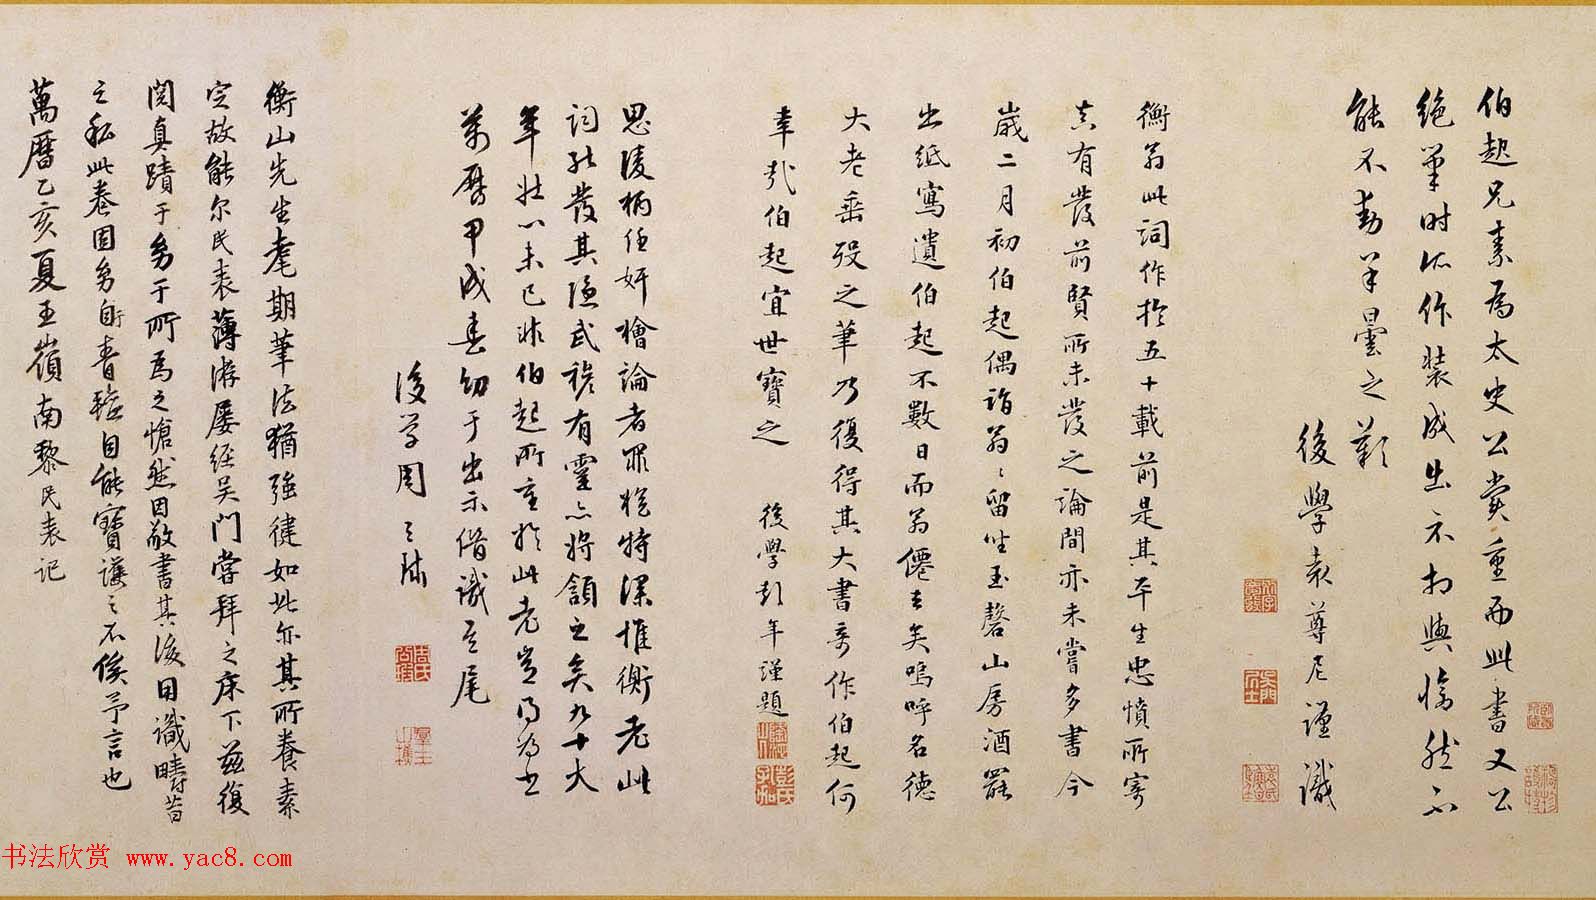 伯起兄素為太史公賞重而此書又公
絕筆時所作裝成出示相與愴然不
能不動羊曇之歎
後學袁尊尼謹識
衡翁此詞作於五十載前是其平生忠憤所寄
真有發前賢所未發之論間亦未嘗多書今
歲二月初伯起偶詣翁翁留坐玉磬山房酒罷
出紙寫遺伯起不數日而翁僊去矣嗚呼名德
大老垂歿之筆乃復得其大書奇作伯起何
幸哉伯起宜世寶之
後學彭年謹題
思陵柄任奸檜論者罪狀特深惟衡老此
詞能發其隱武穆有靈亦將頷之矣九十大
年壯心未已非伯起所重於此老豈得為書
萬曆甲戌春幼于出示借識其尾
後學周
衡山先生耄期筆法猶強健如此亦其所養素
定故能尔民表薄游屡經吳門嘗拜之床下茲復
閱真蹟于幼于所為之愴然因敬書其後用識疇昔
之私此卷固幼于青氊自能寶護之不俟予言也
萬曆乙亥夏五嶺南黎民表記
书法欣赏 www.yac8.com